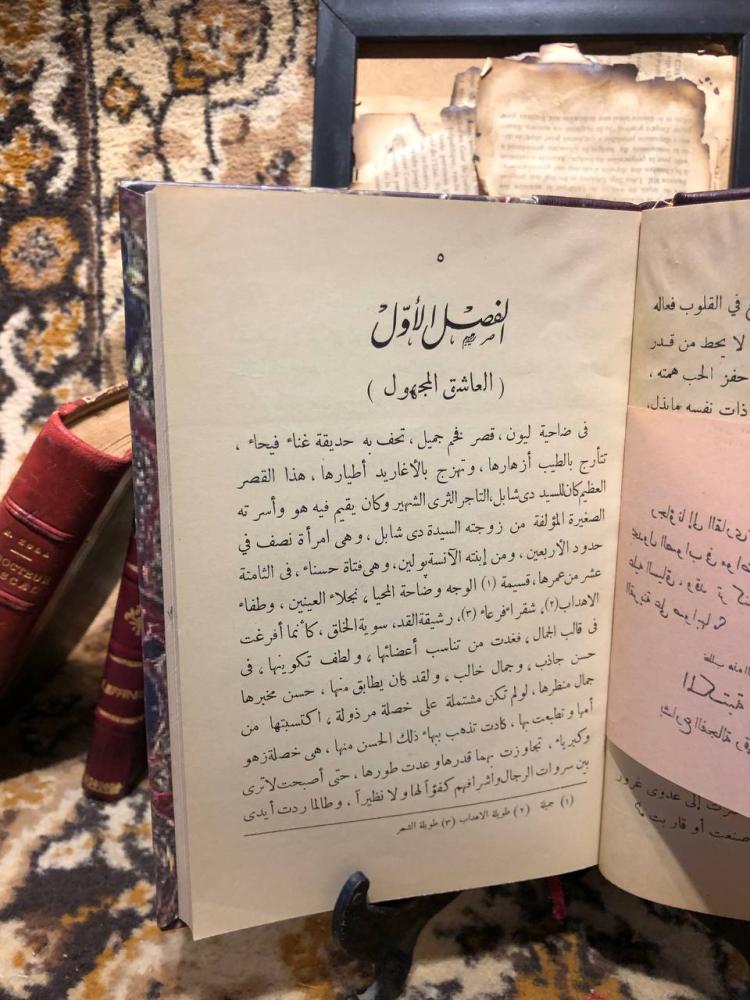 ٥
الفصل الأول
( العاشق المجهول )
فى ضاحية ليون ، قصر فخم جميل ، تحف به حديقة غناء فيحاء ،
تتأرج بالطيب أزهارها ، وتهزج بالأغاريد أطيارها ، هذا القصر
العظيم كان للسيد دى شابل ، التاجر الثرى الشهير وكان يقيم فيه هو وأسرته
الصغيرة المؤلفة من زوجته السيدة دى شابل ، وهى امرأة نصف في
حدود الأربعين ، ومن إبنته الآنسة پولين ، وهى فتاة حسناء ، فى الثامنة
عشر من عمرها ، قسيمة (١) الوجه وضاحة المحيا ، نجلاء العينين ، وطفاء
الاهداب (٢) ، شقراء فرعاء (٣) ، رشيقة القد ، سوية الخلق ، كأنما أفرغت
فى قالب الجمال ، فغدت من تناسب أعضائها ، ولطف تكوينها ، فى
حسن جاذب ، وجمال خالب ، ولقد كان يطابق منها ، حسن مخبرها
جمال منظرها ، لو لم تكن مشتملة على خصلة مرذولة ، اكتسبتها من
أمها وتطبعت بها ، كادت تذهب ببهاء ذلك الحسن منها ، هى خصلة زهو
وكبرياء ، تجاوزت بهما قدرها وعدت طورها ، حتى أصبحت لا ترى
بين سروات الرجال وأشرافهم كفؤاً لها ولا نظيراً ، وطالما ردت أيدى
(١) جميلة (٢) طويلة الاهداب (٣) طويلة الشعر
في القلوب فعاله
لا يحط من قدر
حفز الحب همته ،
ذات نفسه مابذل،
رجاؤنا إلى القارئ
المكتبة
بشارع الفجالة رقم
إلى عدوى غرور
صنعت أو قاربت ؟
E. ZOLA
DOCTEUR
PASCAL